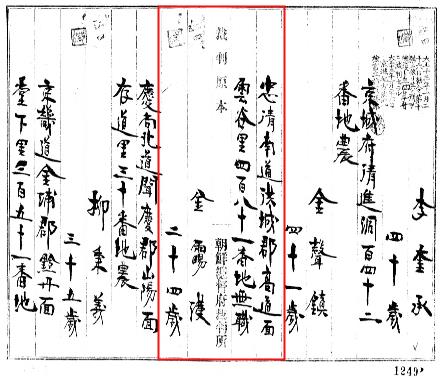 李承
四十歳
京城府清進洞百四十二
番地農
金聲鎮
四十一歳
忠清南道洪城郡高道面
雲谷里四百八十一番地無職
裁判原本
朝鮮總督府裁判所
金
二十四歳
慶尚北道聞慶郡山陽面
存道里三十番地農
柳秉義
三十五歳
京畿道金浦郡黔丹面
臺下里二百五十一番地
1249